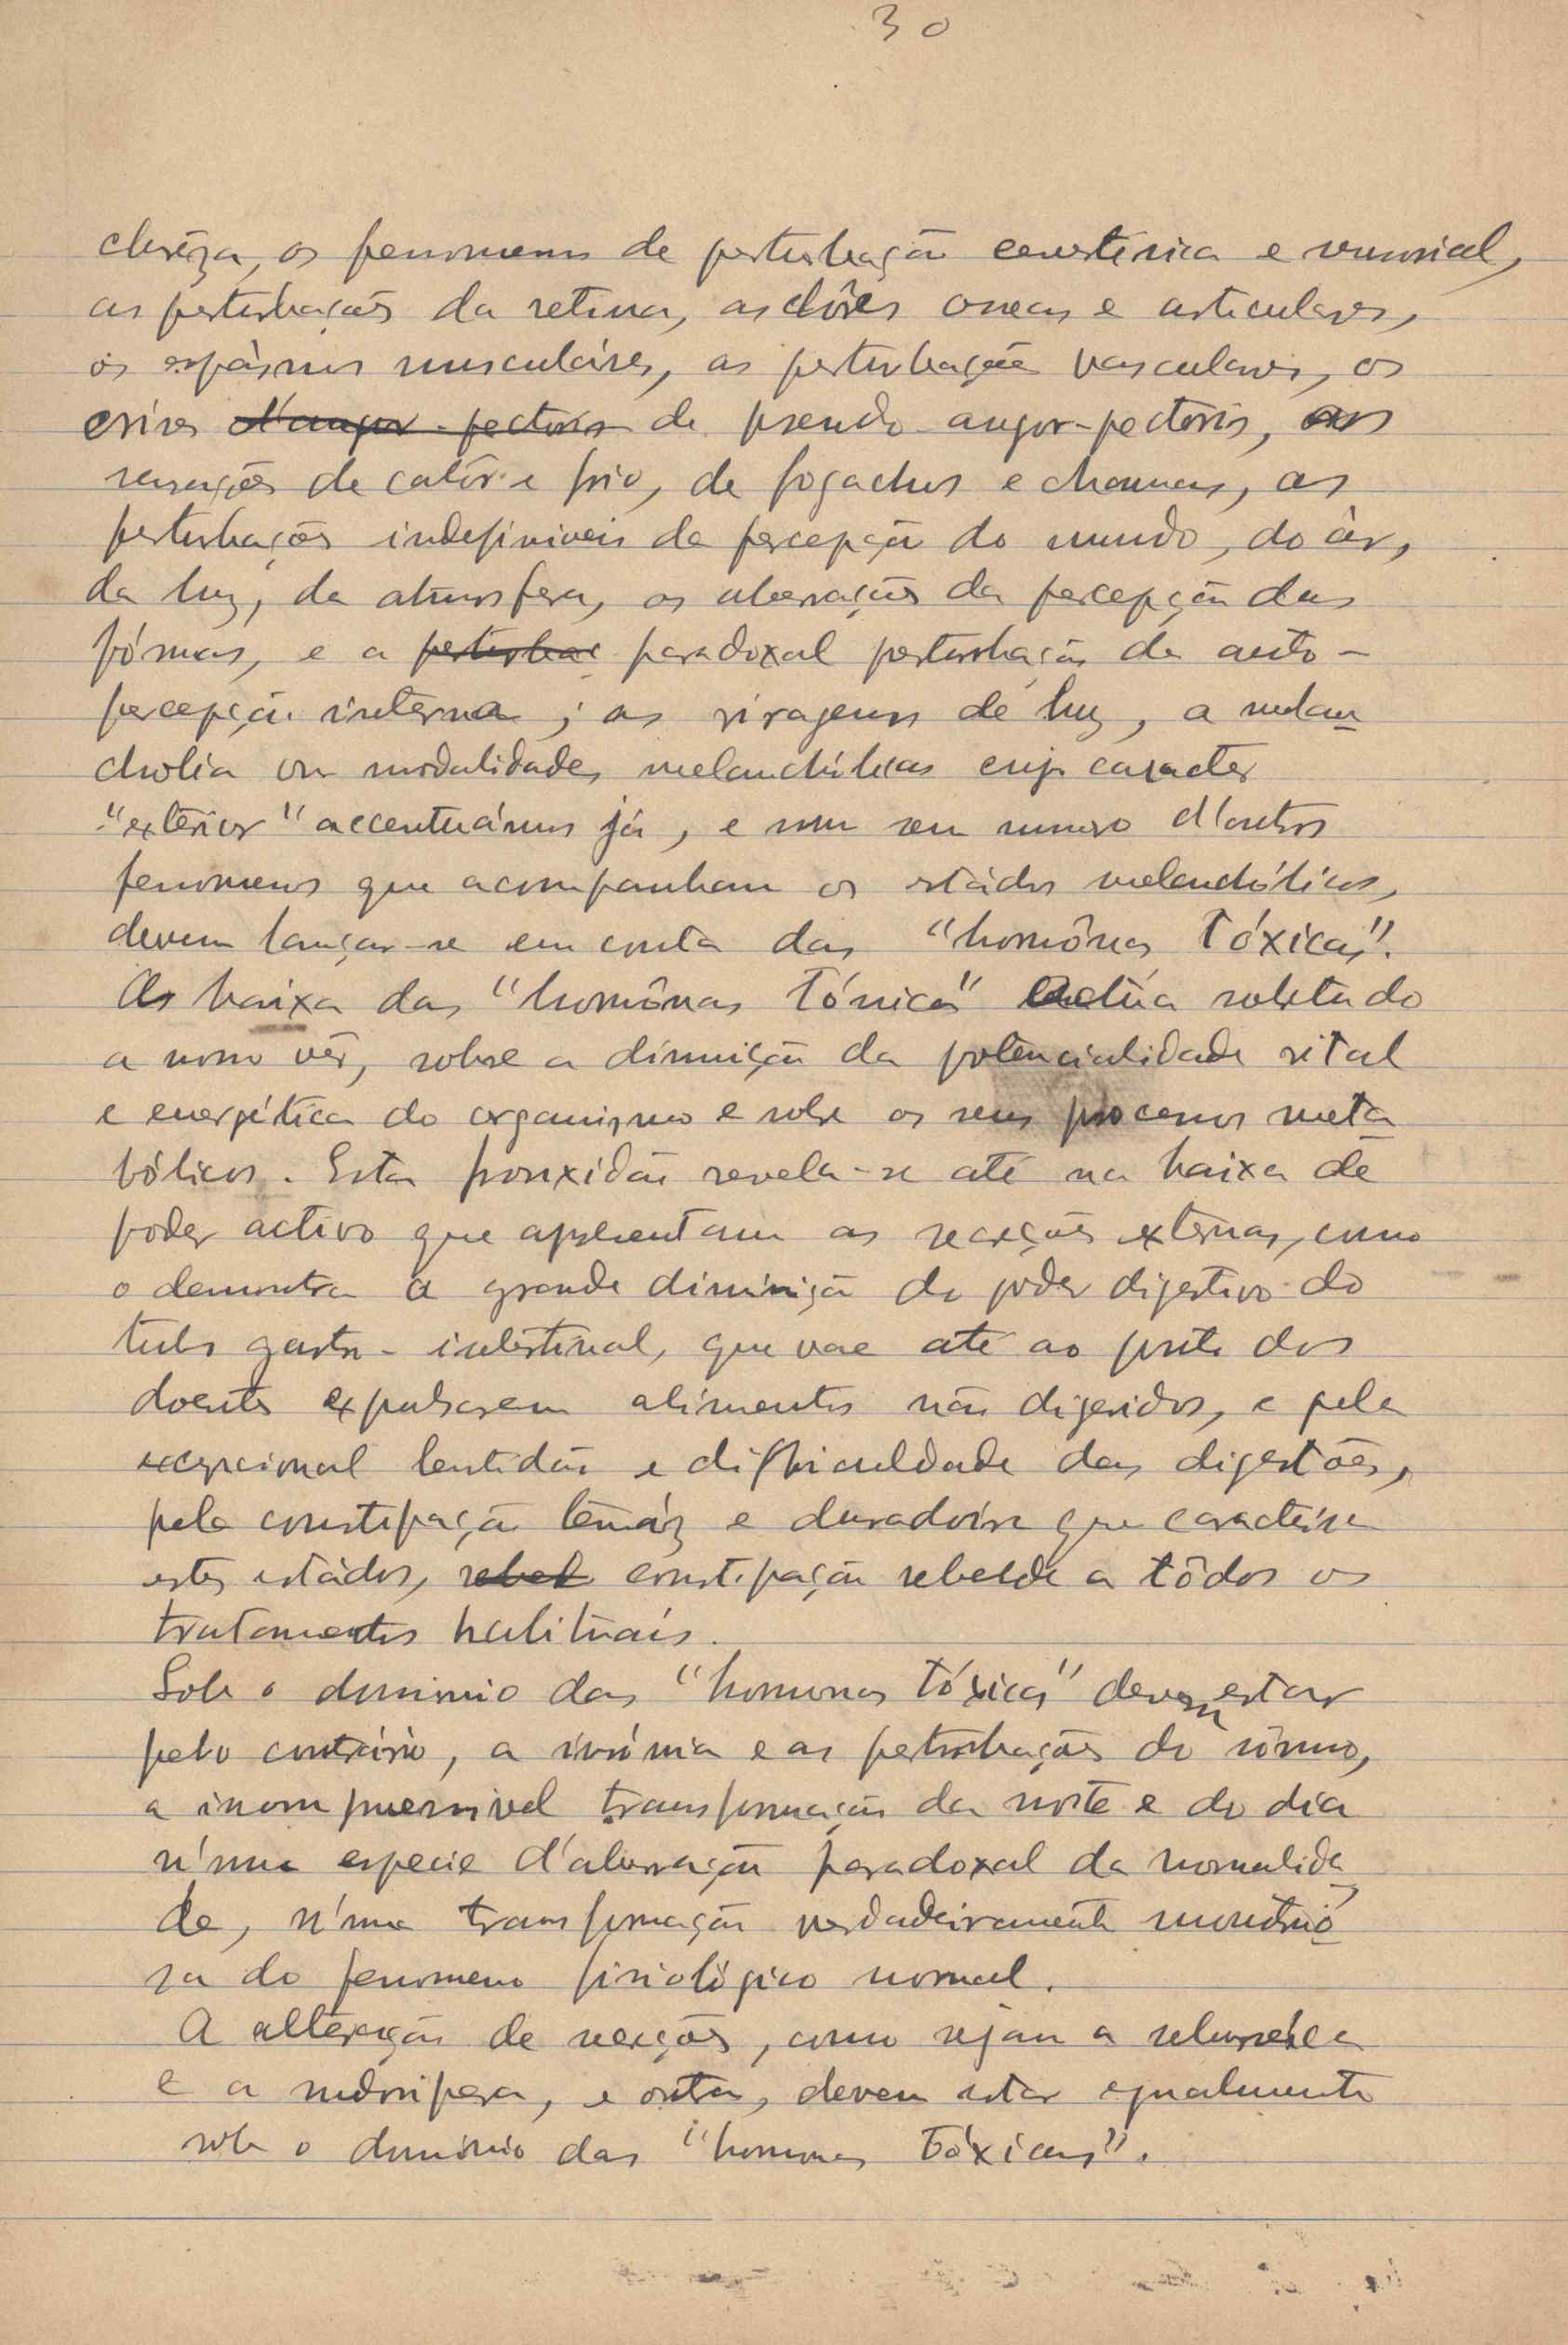 30
clareza, os fenomenos de perturbação cenestésica e sensorial,
as perturbações da retina, as dôres osseas e articulares,
os espásmos musculáres, as perturbações vasculares, os
crises d'angor-pectoris de pseudo angor-pectoris, as
sensações de calôr e frio, de fogachos e chamas, as
perturbações indefiniveis da percepção do mundo, do àr,
da luz, da atmosfera, as aberrações da percepção das
fórmas, e a perturbaç paradoxal perturbação da auto-
percepção interna; as viragens de luz, a melan
cholia ou modalidades melanchólicas cujo caracter
"exterior" accentuámos já, e um sem numero d'outros
fenomenos que acompanham os estádos melanchólicos,
devem lançar-se em conta das "hormônas Tóxicas".
A baixa das "hormônas Tónicas" actúa sobretudo
a nosso vêr, sobre a diminuição da potencialidade vital
e energética do organismo e sobre os seus processos meta
bólicos. Esta frouxidão revela-se até na baixa de
poder activo que apresentam as secreções externas, como
o demonstra a grande diminuição do poder digestivo do
tubo gastro-intestinal, que vae até ao ponto dos
doentes expulsarem alimentos não digeridos, e pela
excepcional lentidão e difficuldade das digestões,
pela constipação tenáz e duradoira que caracterisa
estes estádos, rebel constipação rebelde a tôdos os
tratamentos habituáis.
Sob o dominio das "hormonas tóxicas" devem estar
pelo contrário, a insónia e as perturbações do sômno,
a incompreensivel transformação da noite e do dia
n'uma especie d'aberração paradoxal da normalida
de, n'uma transformação verdadeiramente monstruó
sa do fenomeno fisiológico normal.
A alteração de secreções, como sejam a seborreica
e a sudorifera, e outras, devem estar egualmente
sob o dominio das "hormonas Tóxicas".